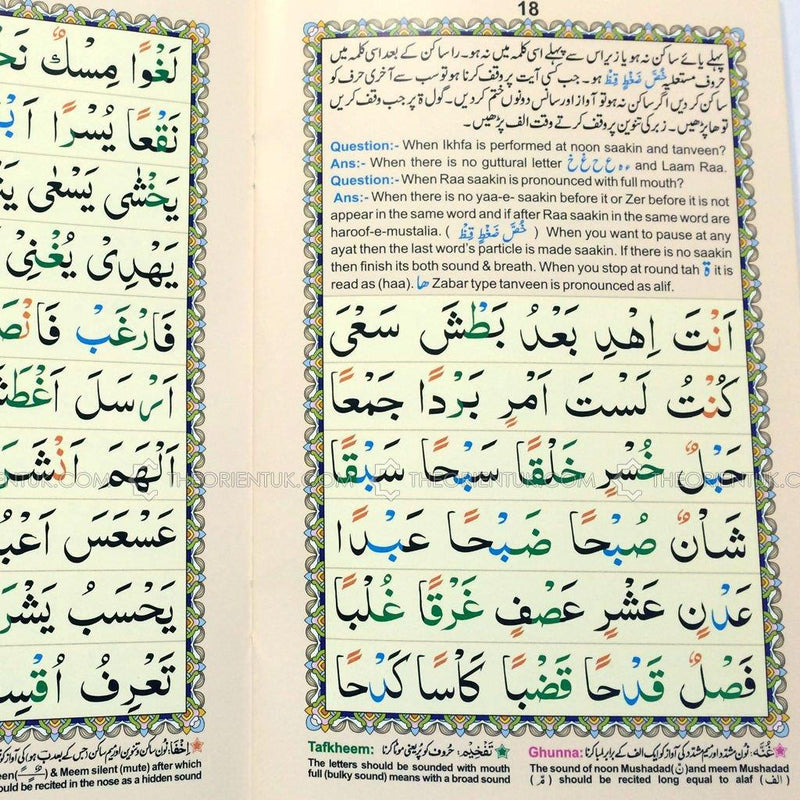 18
پہلے یائے ساکن نہ ہو یا زیر اس سے پہلے اسی کلمہ میں نہ ہو۔ را ساکن کے بعد اسی کلمہ میں
حروف مستعلیہ خُصَّ ضَغْطٍ قِظْ ہو۔ جب کسی آیت پر وقف کرنا ہو تو سب سے آخری حرف کو
ساکن کر دیں اگر ساکن نہ ہو تو آواز اور سانس دونوں ختم کر دیں۔ گول ۃ پر جب وقف کریں
تو ھا پڑھیں۔ زبر کی تنوین پر وقف کرتے وقت الف پڑھیں۔
Question:- When Ikhfa is performed at noon saakin and tanveen?
Ans:- When there is no guttural letter ء ہ ع ح غ خ and Laam Raa.
Question:- When Raa saakin is pronounced with full mouth?
Ans:- When there is no yaa-e- saakin before it or Zer before it is not
appear in the same word and if after Raa saakin in the same word are
haroof-e-mustalia. ( خُصَّ ضَغْطٍ قِظْ ) When you want to pause at any
ayat then the last word's particle is made saakin. If there is no saakin
then finish its both sound & breath. When you stop at round tah ۃ it is
read as (haa). ھا Zabar type tanveen is pronounced as alif.
اَنْتَ اِهْدِ بَعْدُ بَطْشَ سَعْىَ
كُنْتُ لَسْتَ اَمْرٍ بَرْدًا جَمْعًا
حَبْلٌ خُسْرٍ خَلْقًا سَبْحًا سَبْقًا
شَاْنٌ صُبْحًا ضَبْحًا عَبْدًا
عَدْنٍ عَشْرٍ عَصْفٍ غَرْقًا غُلْبًا
فَصْلٌ قَدْحًا قَضْبًا كَاْسًا كَدْحًا
Tafkheem: تَفْخِیْم: حُروف کو پُر یعنی موٹا کرنا
The letters should be sounded with mouth
full (bulky sound) means with a broad sound
Ghunna: غُنَّہ: نُون مشدّد اور میم مشدّد کی آواز کو ایک الف کے برابر لمبا کرنا
The sound of noon Mushadad(نّ)and meem Mushadad
(مّ) should be recited long equal to alaf (الف)
لَغْوًا مِسْكٌ
نَقْعًا يُسْرًا
يَخْشٰى يَسْعٰى
يَهْدِىْ يُغْنِىْ
فَارْغَبْ
اَرْسَلَ
اَلْهَمَ
عَسْعَسَ
يَحْسَبُ
تَعْرِفُ
& Meem silent (mute) after which
be recited in the nose as a hidden sound
THEORIENTUK.COM THEORIENTUK.COM THEORIENTUK.COM